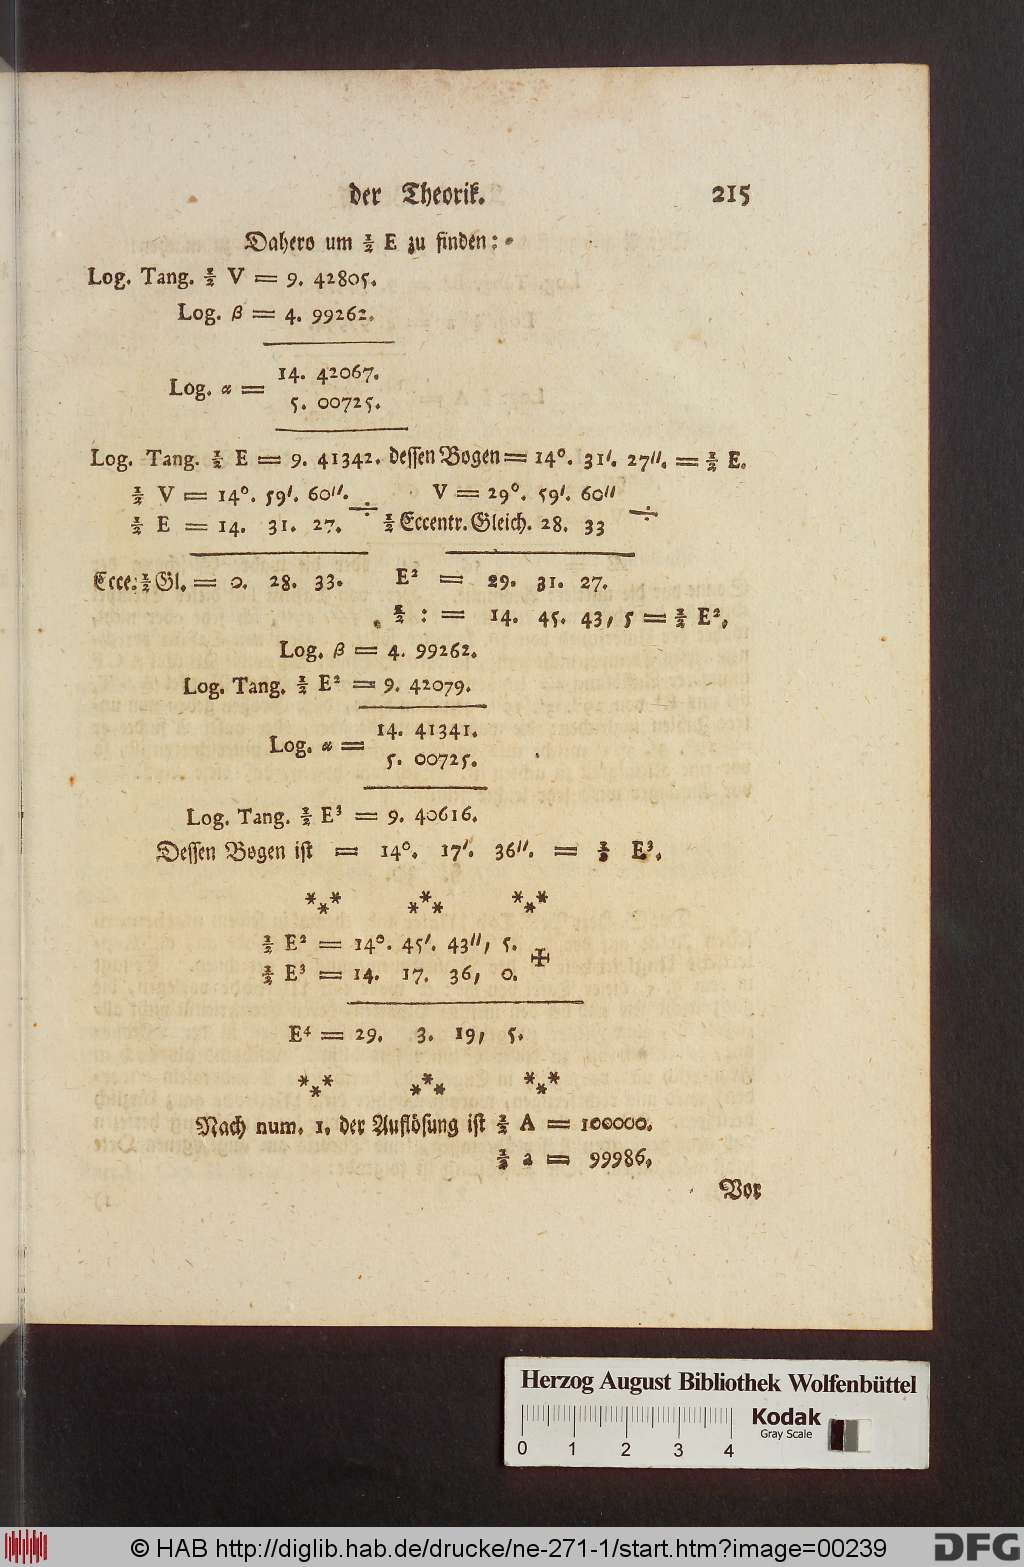 der Theorik. 215
Dahero um ½ E zu finden:
Log. Tang. ½ V = 9. 42805.
Log. β = 4. 99262.
14. 42067.
Log. α =
5. 00725.
Log. Tang. ½ E = 9. 41342. dessen Bogen = 14°. 31′. 27″. = ½ E.
½ V = 14°. 59′. 60″. ÷ V = 29°. 59′. 60″
½ E = 14. 31. 27. ½ Eccentr. Gleich. 28. 33 ÷
Ecce. ½ Gl. = 0. 28. 33. E² = 29. 31. 27.
½ : = 14. 45. 43, 5 = ½ E²,
Log. β = 4. 99262.
Log. Tang. ½ E² = 9. 42079.
14. 41341.
Log. α =
5. 00725.
Log. Tang. ½ E³ = 9. 40616.
Dessen Bogen ist = 14°. 17′. 36″. = ½ E³.
*** *** ***
½ E² = 14°. 45′. 43″, 5. +
½ E³ = 14. 17. 36, 0.
E⁴ = 29. 3. 19, 5.
*** *** ***
Nach num. 1. der Auflösung ist ½ A = 100000.
½ a = 99986,
Vor
Herzog August Bibliothek Wolfenbüttel
0 1 2 3 4
Kodak
Gray Scale
© HAB http://diglib.hab.de/drucke/ne-271-1/start.htm?image=00239
DFG